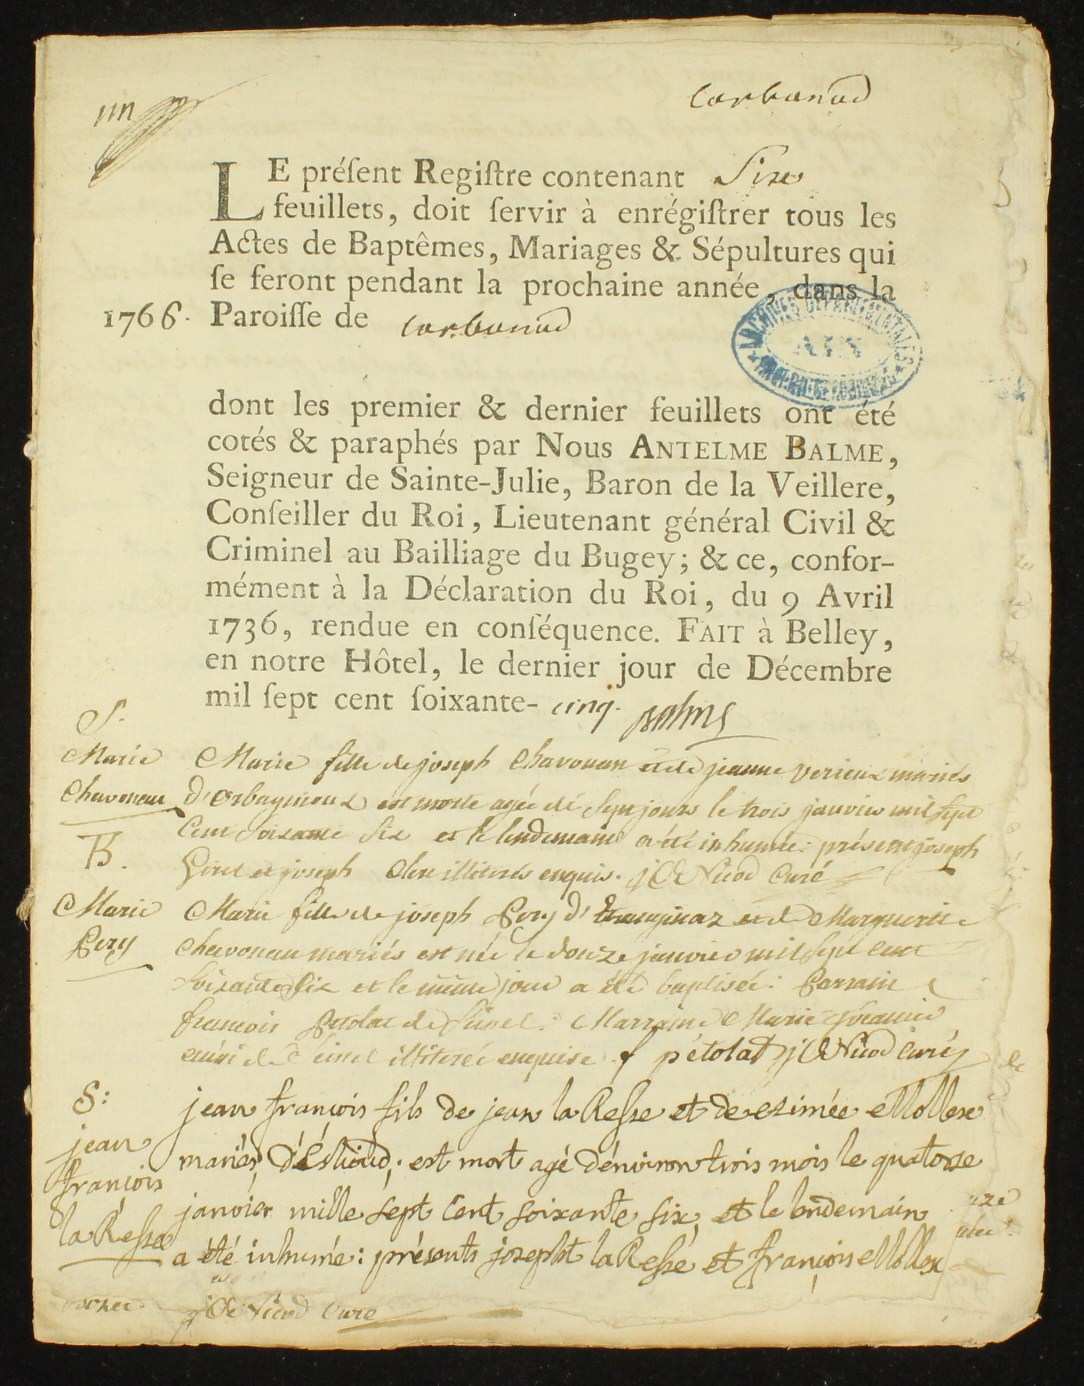 un
Corbonod
LE préſent Regiſtre contenant Six
feuillets, doit ſervir à enrégiſtrer tous les
Actes de Baptêmes, Mariages & Sépultures qui
ſe feront pendant la prochaine année, dans la
1766. Paroiſſe de Corbonod
ARCHIVES DEPARTEMENTALES
AIN
dont les premier & dernier feuillets ont été
cotés & paraphés par Nous ANTELME BALME,
Seigneur de Sainte-Julie, Baron de la Veillere,
Conſeiller du Roi, Lieutenant général Civil &
Criminel au Bailliage du Bugey; & ce, confor-
mément à la Déclaration du Roi, du 9 Avril
1736, rendue en conſéquence. FAIT à Belley,
en notre Hôtel, le dernier jour de Décembre
mil ſept cent ſoixante- cinq. Balme
S.
Marie
Chavonau
Marie fille de joseph Chavonau et de jeanne mariés
est morte agée de sept jours le trois janvier mil sept
Cent soixante Six et le lendemain a été inhumée: présent joseph
et joseph illiterés enquis. Nicod Curé
B.
Marie
Pery
Marie fille de joseph Pery et de Marguerite
Chavonau mariés est née le douze janvier mil sept cent
soixante Six et le même jour a été baptisée: Parrain
francois Petolat de Marraine Marie
illiterée enquise f pétolat Nicod Curé
S:
jean
françois
la Resse
jean françois fils de jean la Resse et de esimée Mollex
mariés est mort agé d'énviron trois mois le quatorse
janvier mille sept Cent soixante six et le lendemain
a été inhumé: présents joseph la Resse et françois Mollex
Nicod Curé